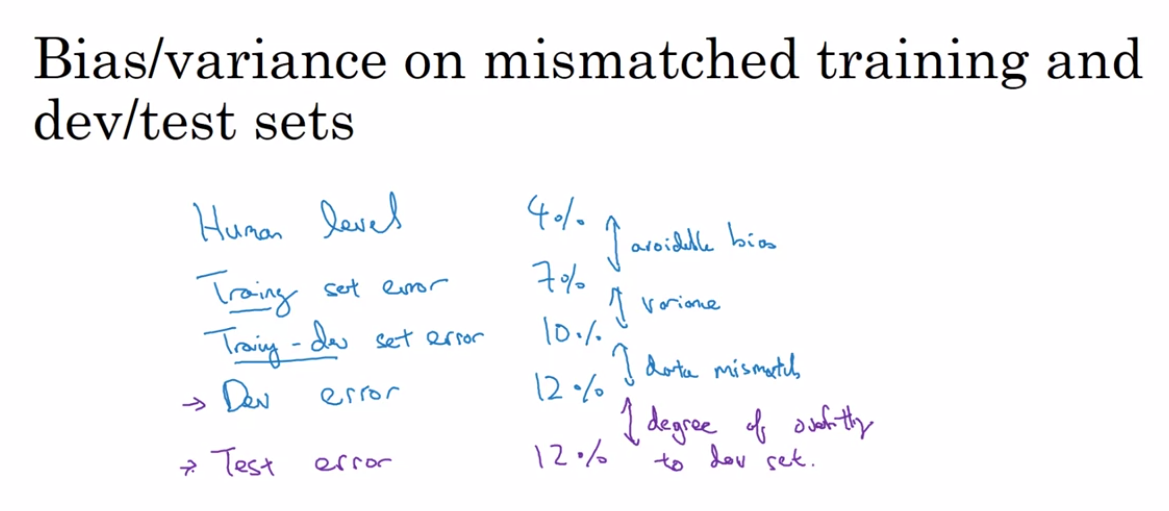 Bias/variance on mismatched training and
dev/test sets
Human level 4% avoidable bias
Training set error 7% variance
Training-dev set error 10% data mismatch
→ Dev error 12% degree of overfitting
→ Test error 12% to dev set.